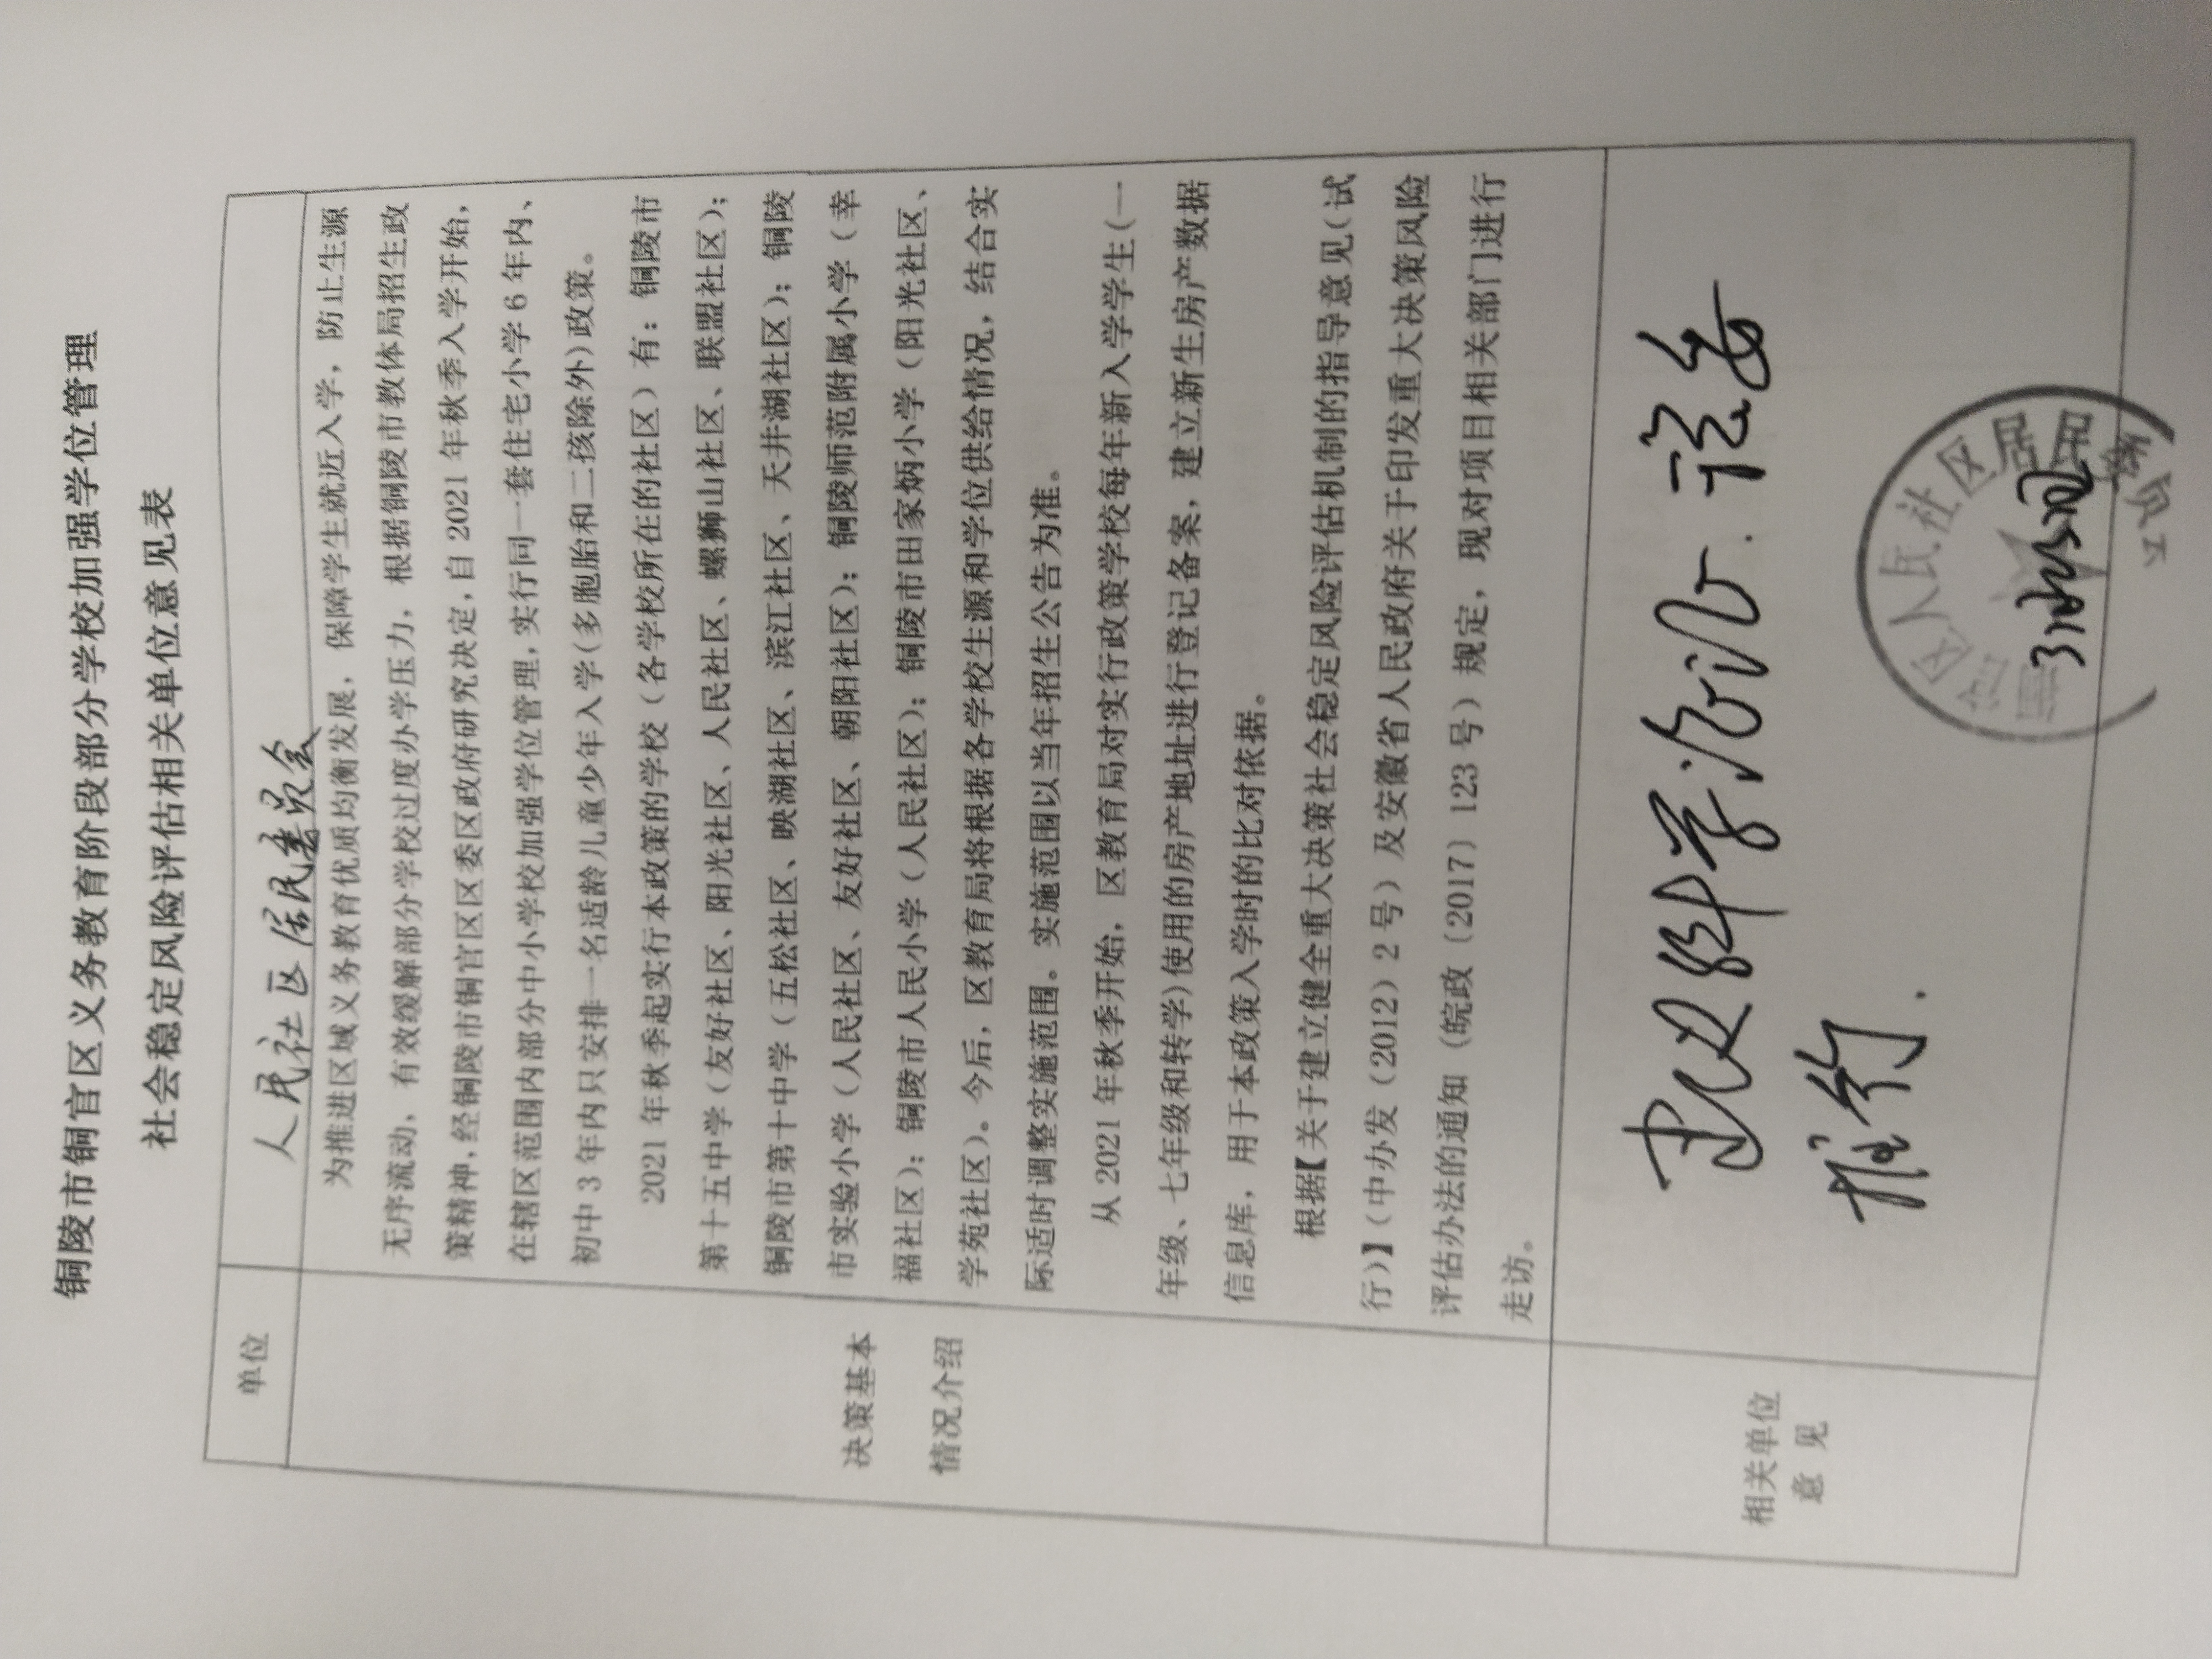 铜陵市铜官区义务教育阶段部分学校加强学位管理
社会稳定风险评估相关单位意见表
单位
人民社区居民委员会
为推进区域义务教育优质均衡发展，保障学生就近入学，防止生源
无序流动，有效缓解部分学校过度办学压力，根据铜陵市教体局招生政
策精神，经铜陵市铜官区区委区政府研究决定，自 2021 年秋季入学开始，
在辖区范围内部分中小学校加强学位管理，实行同一套住宅小学 6 年内、
初中 3 年内只安排一名适龄儿童少年入学（多胞胎和二孩除外）政策。
2021 年秋季起实行本政策的学校（各学校所在的社区）有：铜陵市
第十五中学（友好社区、阳光社区、人民社区、螺狮山社区、联盟社区）；
铜陵市第十中学（五松社区、映湖社区、滨江社区、天井湖社区）；铜陵
市实验小学（人民社区、友好社区、朝阳社区）；铜陵师范附属小学（幸
福社区）；铜陵市人民小学（人民社区）；铜陵市田家炳小学（阳光社区、
学苑社区）。今后，区教育局将根据各学校生源和学位供给情况，结合实
际适时调整实施范围。实施范围以当年招生公告为准。
从 2021 年秋季开始，区教育局对实行政策学校每年新入学学生（一
年级、七年级和转学）使用的房产地址进行登记备案，建立新生房产数据
信息库，用于本政策入学时的比对依据。
根据【关于建立健全重大决策社会稳定风险评估机制的指导意见（试
行）】（中办发（2012）2 号）及安徽省人民政府关于印发重大决策风险
评估办法的通知（皖政（2017）123 号）规定，现对项目相关部门进行
走访。
决策基本
情况介绍
相关单位
意 见
推行.
区人民社区居